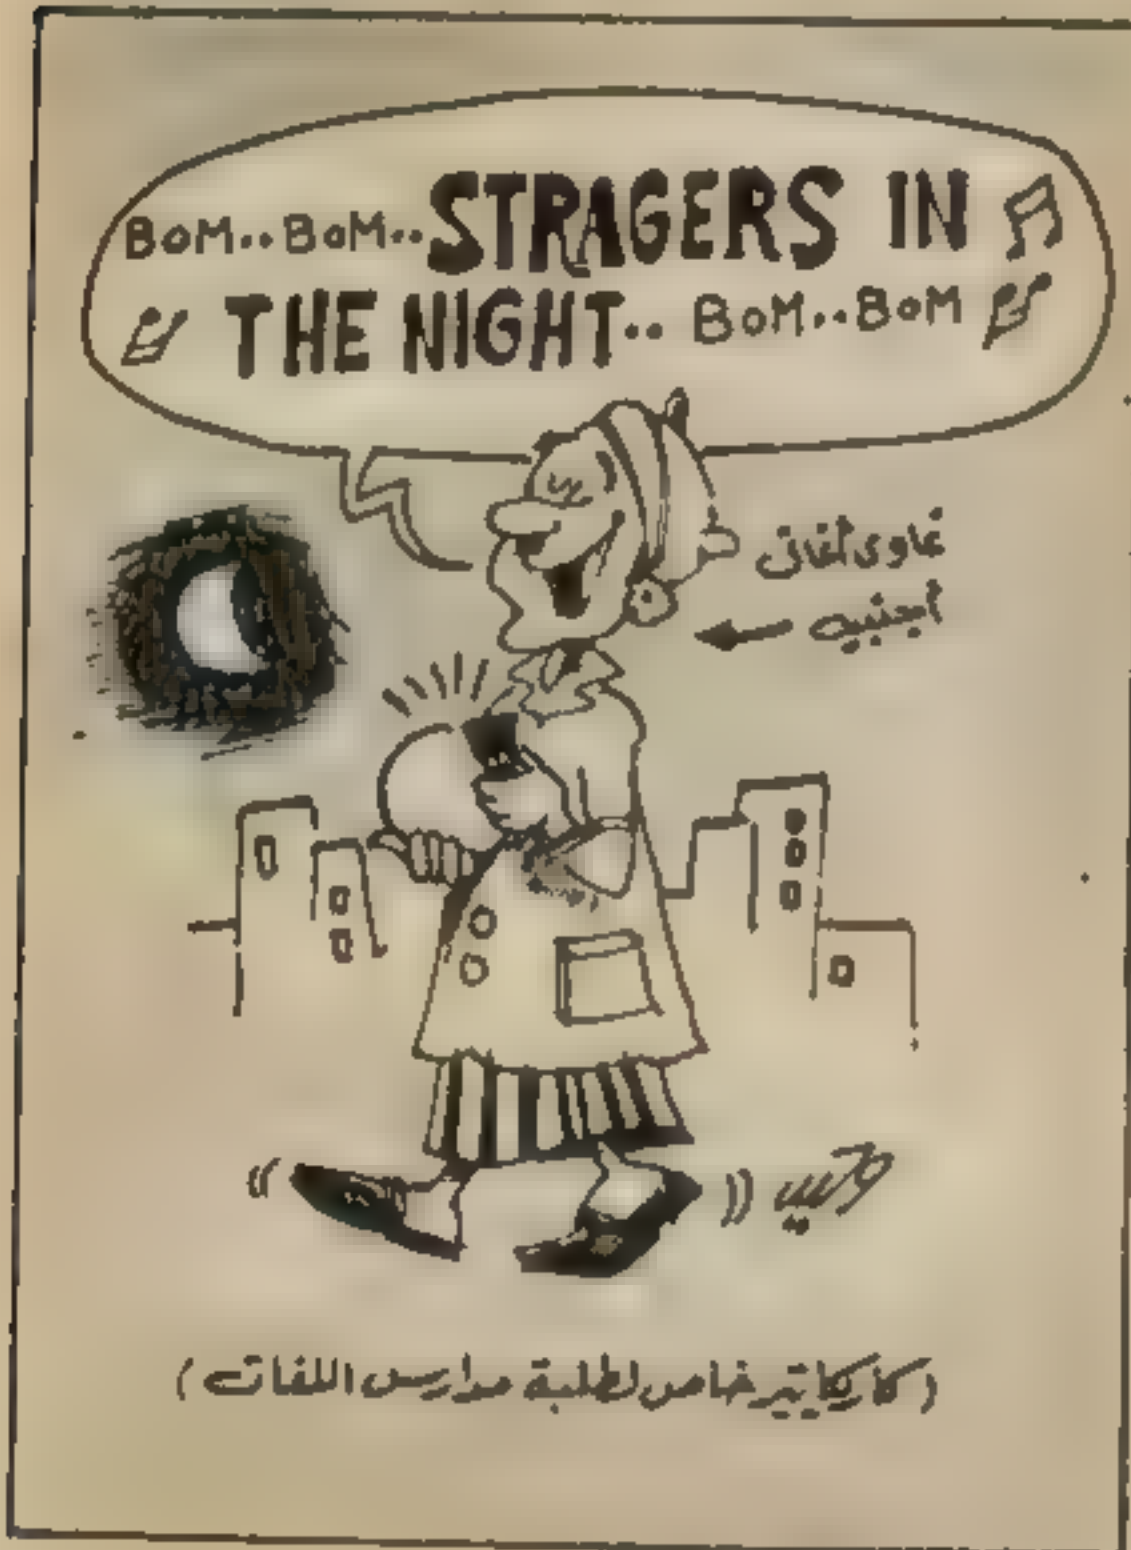 BOM.. BOM.. STRAGERS IN
THE NIGHT.. BOM.. BOM
غاوى أغانى
أجنبيه
(كاريكاتير خاص لطلبة مدارس اللغات)